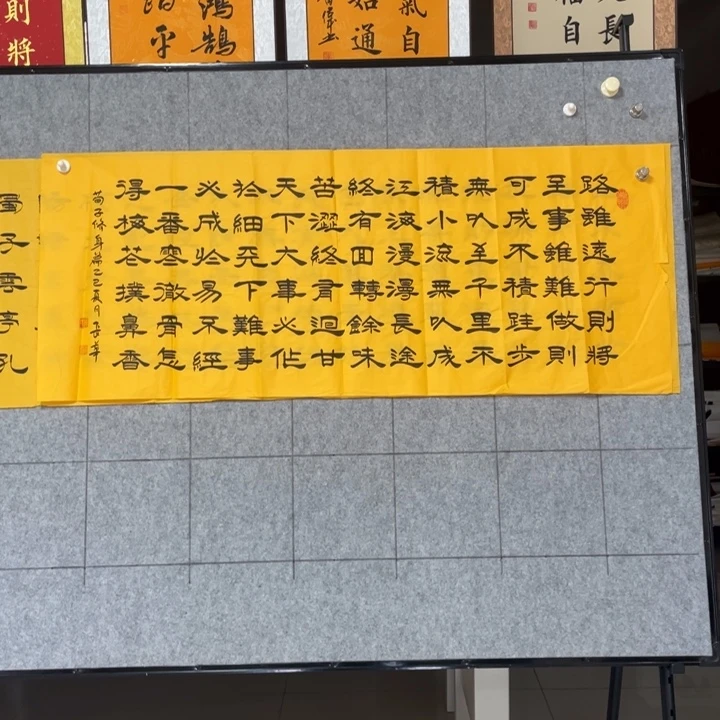 則將
鴻鵠
平
氣自
如通
長
福自
路雖遠行則將
至事雖難做則
可成不積跬步
無以至千里不
積小流無以成
江海漫漫長途
終有回轉餘味
苦澀終有迴甘
天下大事必作
於細天下難事
必成於易不經
一番寒徹骨怎
得梅花撲鼻香
荀子修身篇乙巳夏月
蜀子雲亭孔